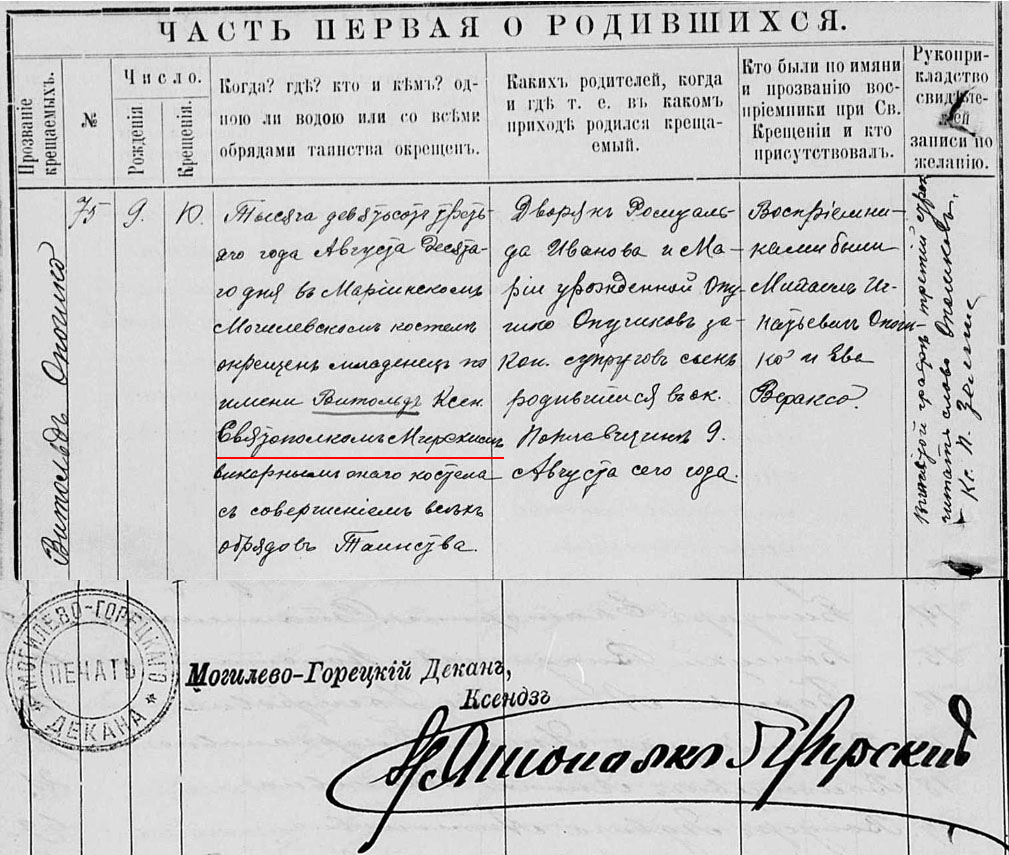 ЧАСТЬ ПЕРВАЯ О РОДИВШИХСЯ.
Прозваніе
крещаемыхъ.
№
Число.
Рожденія
Крещенія.
Когда? гдѣ? кто и кѣмъ? од-
ною ли водою или со всѣми
обрядами таинства окрещенъ.
Какихъ родителей, когда
и гдѣ т. е. въ какомъ
приходѣ родился креща-
емый.
Кто были по имяни
и прозванію вос-
пріемники при Св.
Крещеніи и кто
присутствовалъ.
Рукопри-
кладство
свидѣте-
лей
записи по
желанію.
Витольдъ Опошко
75
9.
10
Тысяча девятьсотъ треть-
яго года Августа Десята-
го дня въ Маріинскомъ
Могилевскомъ костелѣ
окрещенъ младенецъ по
имени Витольдъ Ксен.
Святополкомъ
викарнымъ онаго костела
съ совершеніемъ всѣхъ
обрядовъ Таинства.
Дворянъ Ромуаль-
да Иванова и Ма-
ріи урожденной
за-
кон. супруговъ сынъ
родившійся въ ок.
9.
Августа сего года.
Воспріемни-
ками были
Михаилъ Иг-
натьевичъ
и Ева
Веракса.
графѣ третій
читать слово
Кс. П.
МОГИЛЕВО-ГОРЕЦКАГО
ПЕЧАТЬ
ДЕКАНА
Могилево-Горецкій Деканъ,
Ксендзъ